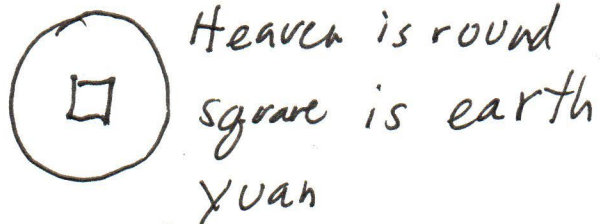 Heaven is round
square is earth
yuan